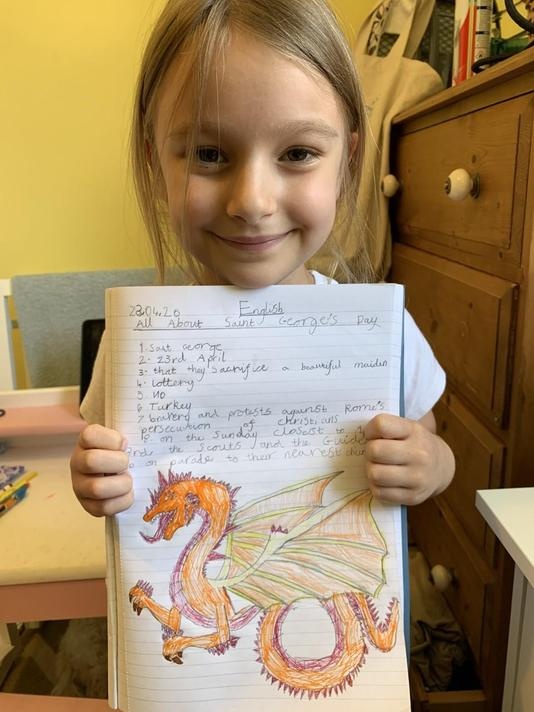 23.04.20 English
All About Saint George's Day
1. Sait George
2. 23rd April
3. that they sacrifice a beautiful maiden
4. Lottery
5. No
6. Turkey
7. bravery and protests against Rome's
persecution of christians
on the Sunday closest to
the Scouts and the Guide
on parade to their nearest